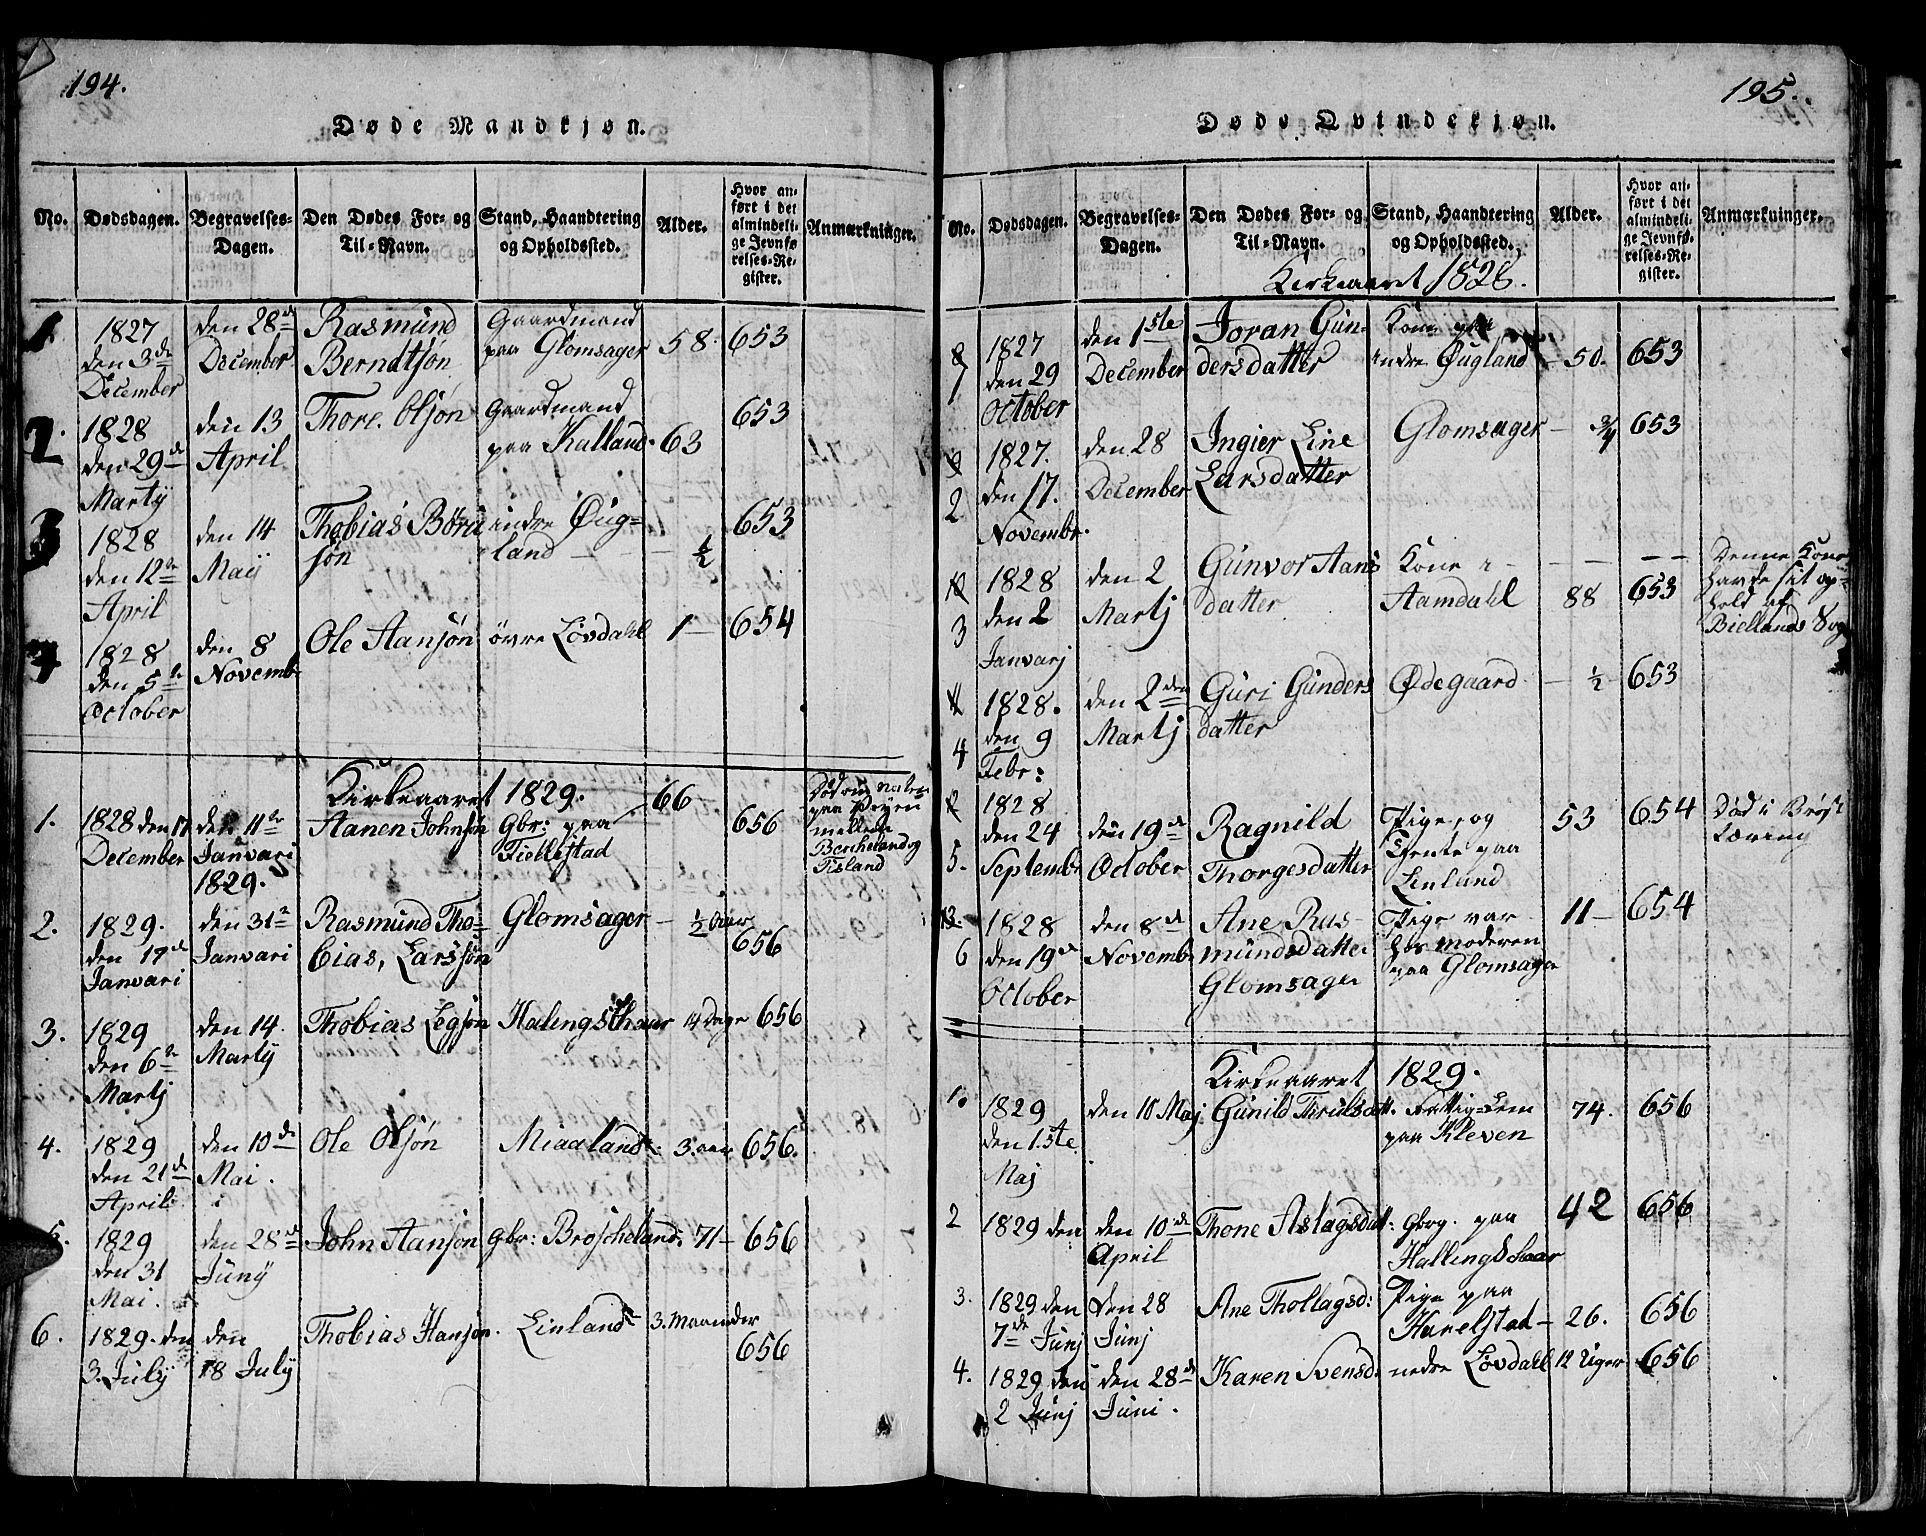 194.
Døde Mandkjøn.
No. Dødsdagen. Begravelses-Dagen. Den Dødes For- og Til-Navn. Stand, Haandtering og Opholdssted. Alder. Hvor anført i det almindelige Jevnførelses-Register. Anmærkninger.
1. 1827 den 28de Rasmund Gaardmand
den 3de December Berndtsøn paa Glomsager 58. 653
December
2. 1828 den 13 Thore Olsøn Gaardmand 653
den 29de April paa Kalland. 63
Martÿ
3 1828 den 14 Thobias Børu indre Øug= 653
den 12te Maÿ søn land ½
April
4 1828 den 8 Ole Aansøn övre Lövdahl 1 654
den 5te Novembr
October
Kirkeaaret 1829.
1. 1828 den 17 den 11te Aanen Johnsøn Gbr: paa 66 656
December Janvari Fiellestad
1829.
paa
Tisland
2. 1829. den 31te Rasmund Tho= Glomsager ½ Aar
den 17de Janvari bias, Larssøn 656
Janvari
3. 1829 den 14. Thobias Legsøn 14 Dage 656
den 6te Martÿ
Martj
4. 1829 den 10de Ole Olsøn Miaaland 3. aar 656.
den 21de Mai.
April
5. 1829 den 28de John Aansøn gbr: Broscheland. 71 656
den 31 Junÿ
Mai.
6. 1829. den den Thobias Hansøn. Einland 3. Maaneder
3. Julÿ 18 Julÿ 656
195.
Døde Qvindekjøn.
No. Dødsdagen. Begravelses-Dagen. Den Dødes For- og Til-Navn. Stand, Haandtering og Opholdssted. Alder. Hvor anført i det almindelige Jevnførelses-Register. Anmærkninger.
Kirkeaaret 1828.
8 1827 den 1ste Joran Gun- Kone paa
1 den 29 December dersdatter indre Øugland 50. 653
October
9 1827. den 28 Ingier Line Glomsager ¾ 653
2 den 17. December Larsdatter
Novembr.
10 1828 den 2 Gunvor Aans Kone Denne Kone
3 den 2 Martj datter Aamdahl 88 653 havde sit op=
Janvarj hold af
Biellands Sogn
11 1828. den 2den Guri Gunders Ødegaard ½ 653
4 den 9 Martj datter
Febr:
12 1828 den 19de Ragnild Pige, og 53 654 Död i Bröst
5. den 24 October Thorgesdatter paa
Septembr Einland
13. 1828 den 8de Ane Ras- Pige var 11 654
6 den 19de Novemb. mundsdatter hos moderen
October Glomsager paa Glomsager
Kirkeaaret 1829.
1. 1829 den 10 Maj. Gunild 74. 656
den 1.ste paa Kleven
Maj
2 1829 den den 10de Thone Aslagsdat: paa 42 656
April
3. 1829 den Den 28 Ane Thollagsd: Pige paa
7de Junj Junj 26. 656
4. 1829 den den 28de Karen Svensd. nedre Lövdahl 12 Uger 656
2 Junj Juni.